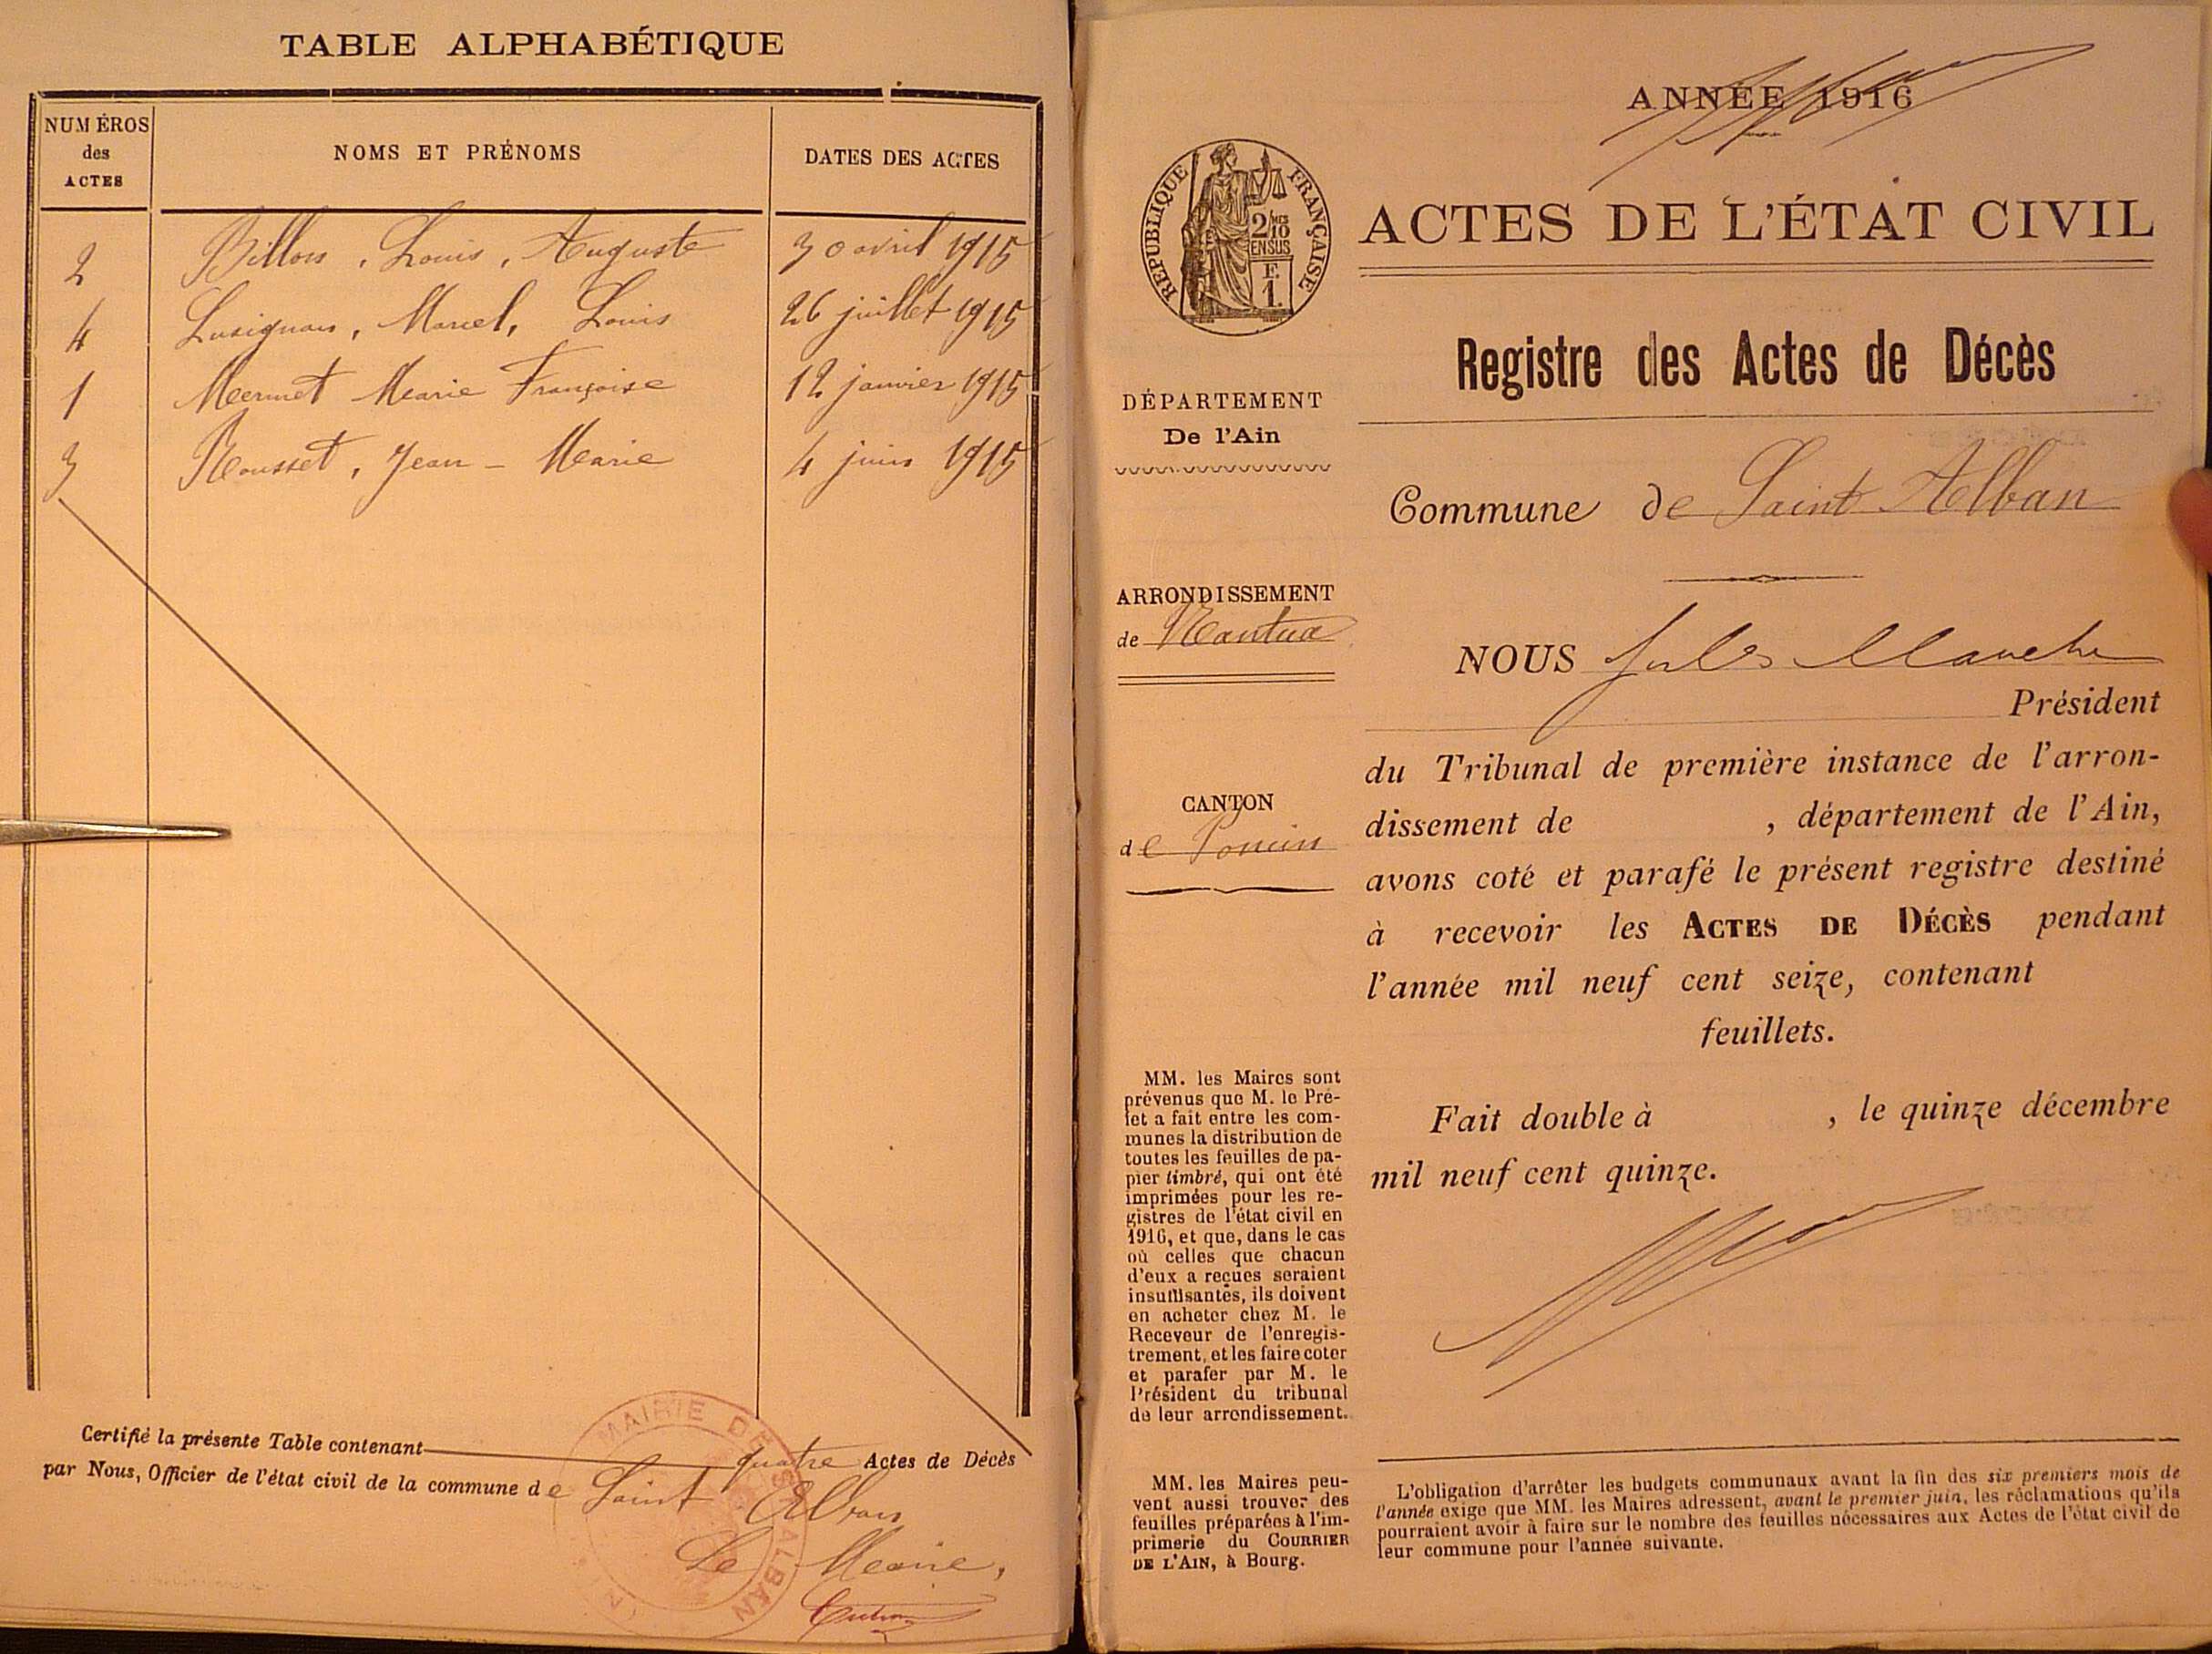 TABLE ALPHABÉTIQUE
NUMÉROS
des
ACTES
NOMS ET PRÉNOMS
DATES DES ACTES
2 Billon, Louis, Auguste 30 avril 1915
4 Lusignan, Marcel, Louis 26 juillet 1915
1 Mermet Marie Françoise 12 janvier 1915
3 Rousset, Jean-Marie 4 juin 1915
Certifié la présente Table contenant quatre Actes de Décès
par Nous, Officier de l'état civil de la commune de Saint Alban
Le Maire,
MAIRIE DE ST ALBAN
ANNÉE 1916
RÉPUBLIQUE FRANÇAISE
2/10 MES
EN SUS
F.
1.
ACTES DE L'ÉTAT CIVIL
Registre des Actes de Décès
DÉPARTEMENT
De l'Ain
Commune de Saint Alban
ARRONDISSEMENT
de Nantua
CANTON
de Poncin
NOUS Jules
Président
du Tribunal de première instance de l'arron-
dissement de , département de l'Ain,
avons coté et parafé le présent registre destiné
à recevoir les ACTES DE DÉCÈS pendant
l'année mil neuf cent seize, contenant
feuillets.
Fait double à , le quinze décembre
mil neuf cent quinze.
MM. les Maires sont
prévenus que M. le Pré-
fet a fait entre les com-
munes la distribution de
toutes les feuilles de pa-
pier timbré, qui ont été
imprimées pour les re-
gistres de l'état civil en
1916, et que, dans le cas
où celles que chacun
d'eux a reçues seraient
insuffisantes, ils doivent
en acheter chez M. le
Receveur de l'enregis-
trement, et les faire coter
et parafer par M. le
Président du tribunal
de leur arrondissement.
MM. les Maires peu-
vent aussi trouver des
feuilles préparées à l'im-
primerie du COURRIER
DE L'AIN, à Bourg.
L'obligation d'arrêter les budgets communaux avant la fin des six premiers mois de
l'année exige que MM. les Maires adressent, avant le premier juin, les réclamations qu'ils
pourraient avoir à faire sur le nombre des feuilles nécessaires aux Actes de l'état civil de
leur commune pour l'année suivante.